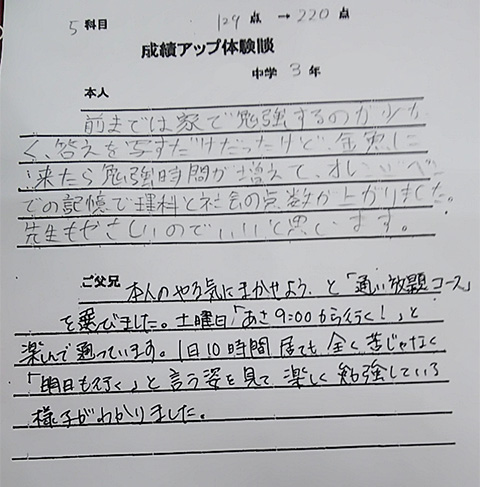 5 科目 129 点 → 220 点
成績アップ体験談
中学 3 年
本人
前までは家で勉強するのが少な
く、答えを写すだけだったけど、金魚に
来たら勉強時間が増えて、オレンジペン
での記憶で理科と社会の点数が上がりました。
先生もやさしいのでいいと思います。
ご父兄 本人のやる気にまかせよう、と「通い放題コース」
を選びました。土曜日「あさ9:00から行く!」と
楽しんで通っています。1日10時間居ても全く苦じゃなく
「明日も行く」と言う姿を見て楽しく勉強している
様子がわかりました。